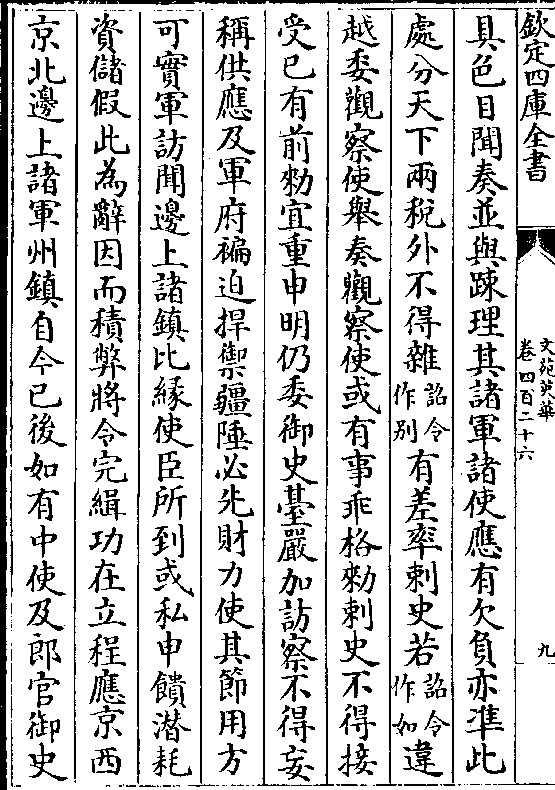 欽定四庫全書
文苑英華
卷四百二十六
九
具色目聞奏並與踈理其諸軍諸使應有欠負亦準此
處分天下兩稅外不得雜詔令作别有差率刺史若詔令作如違
越委觀察使舉奏觀察使或有事乖格勑刺史不得接
受已有前勑宜重申明仍委御史臺嚴加訪察不得妄
稱供應及軍府褊迫捍禦疆陲必先財力使其節用方
可實軍訪聞邊上諸鎮比緣使臣所到或私申饋潜耗
資儲假此為辭因而積弊將令完緝功在立程應京西
京北邊上諸軍州鎮自今已後如有中使及郎官御史